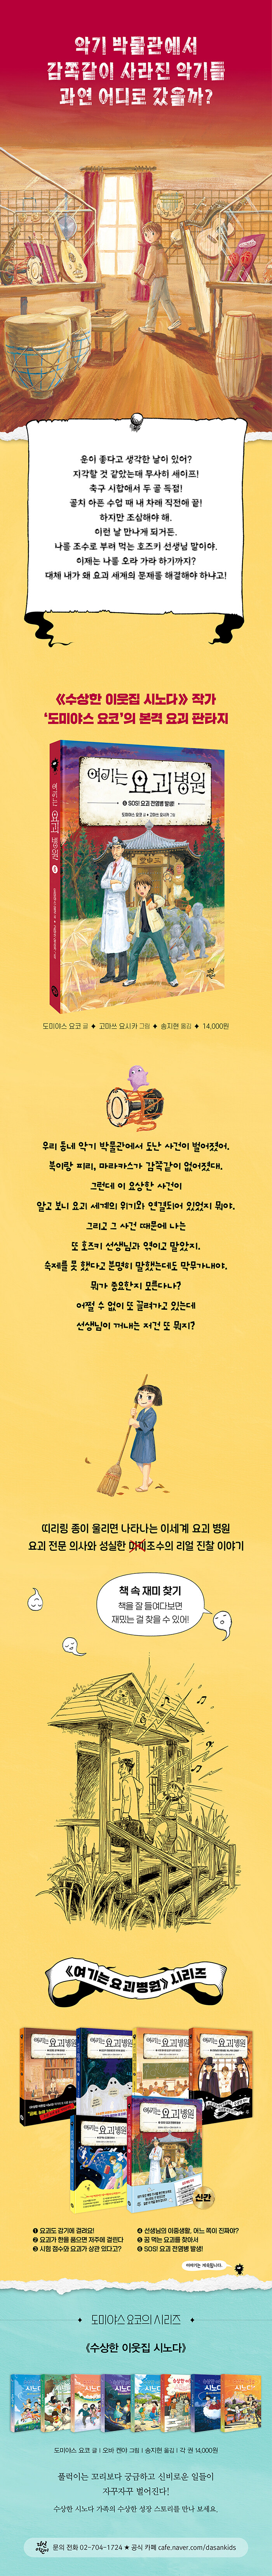 악기 박물관에서
감쪽같이 사라진 악기들
과연 어디로 갔을까?
운이 좋다고 생각한 날이 있어?
지각할 것 같았는데 무사히 세이프!
축구 시합에서 두 골 득점!
골치 아픈 수업 때 내 차례 직전에 끝!
하지만 조심해야 해.
이런 날 만나게 되거든.
나를 조수로 부려 먹는 호즈키 선생님 말이야.
이제는 나를 오라 가라 하기까지?
대체 내가 왜 요괴 세계의 문제를 해결해야 하냐고!
《수상한 이웃집 시노다》 작가
‘도미야스 요코’의 본격 요괴 판타지
여기는 요괴 병원
❻ SOS! 요괴 전염병 발생!
도미야스 요코 글 ◆ 고마쓰 요시카 그림
여기는 요괴 병원 ❻
다산어린이
도미야스 요코 글 ◆ 고마쓰 요시카 그림 ◆ 송지현 옮김 ◆ 14,000원
우리 동네 악기 박물관에서 도난 사건이 벌어졌어.
북이랑 피리, 마라카스가 감쪽같이 없어졌대.
그런데 이 요상한 사건이
알고 보니 요괴 세계의 위기와 연결되어 있었지 뭐야.
그리고 그 사건 때문에 나는
또 호즈키 선생님과 엮이고 말았지.
숙제를 못 했다고 분명히 말했는데도 막무가내야.
뭐가 중요한지 모른다나?
어쩔 수 없이 또 끌려가고 있는데
선생님이 꺼내는 저건 또 뭐지?
띠리링 종이 울리면 나타나는 이세계 요괴 병원
요괴 전문 의사와 성실한 조수의 리얼 진찰 이야기
책 속 재미 찾기
책을 잘 들여다보면
재밌는 걸 찾을 수 있어!
《여기는 요괴 병원》 시리즈
여기는 요괴 병원
여기는 요괴 병원
여기는 요괴 병원
여기는 요괴 병원
여기는 요괴 병원
여기는 요괴 병원
신간
❶ 요괴도 감기에 걸려요!
❷ 요괴가 한을 품으면 저주에 걸린다
❸ 시험 점수와 요괴가 상관 있다고?
❹ 선생님의 이중생활, 어느 쪽이 진짜야?
❺ 꿈 먹는 요괴를 찾아서
❻ SOS! 요괴 전염병 발생!
이야기는 계속됩니다.
도미야스 요코의 시리즈
《수상한 이웃집 시노다》
도미야스 요코 글 | 오바 켄야 그림 | 송지현 옮김 | 각 권 14,000원
폴락이는 꼬리보다 궁금하고 신비로운 일들이
자꾸자꾸 벌어진다!
수상한 시노다 가족의 수상한 성장 스토리를 만나 보세요.
다산어린이
문의 전화 02-704-1724 ★ 공식 카페 cafe.naver.com/dasankids